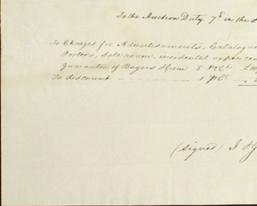 To the Auction Duty 7d in the
To Charges for Advertisements, Catalogue
Porters, Sale-room, incidental expences
Guarantee of Buyers & from 5 P Ct
To discount 1 P Ct
(signed) J